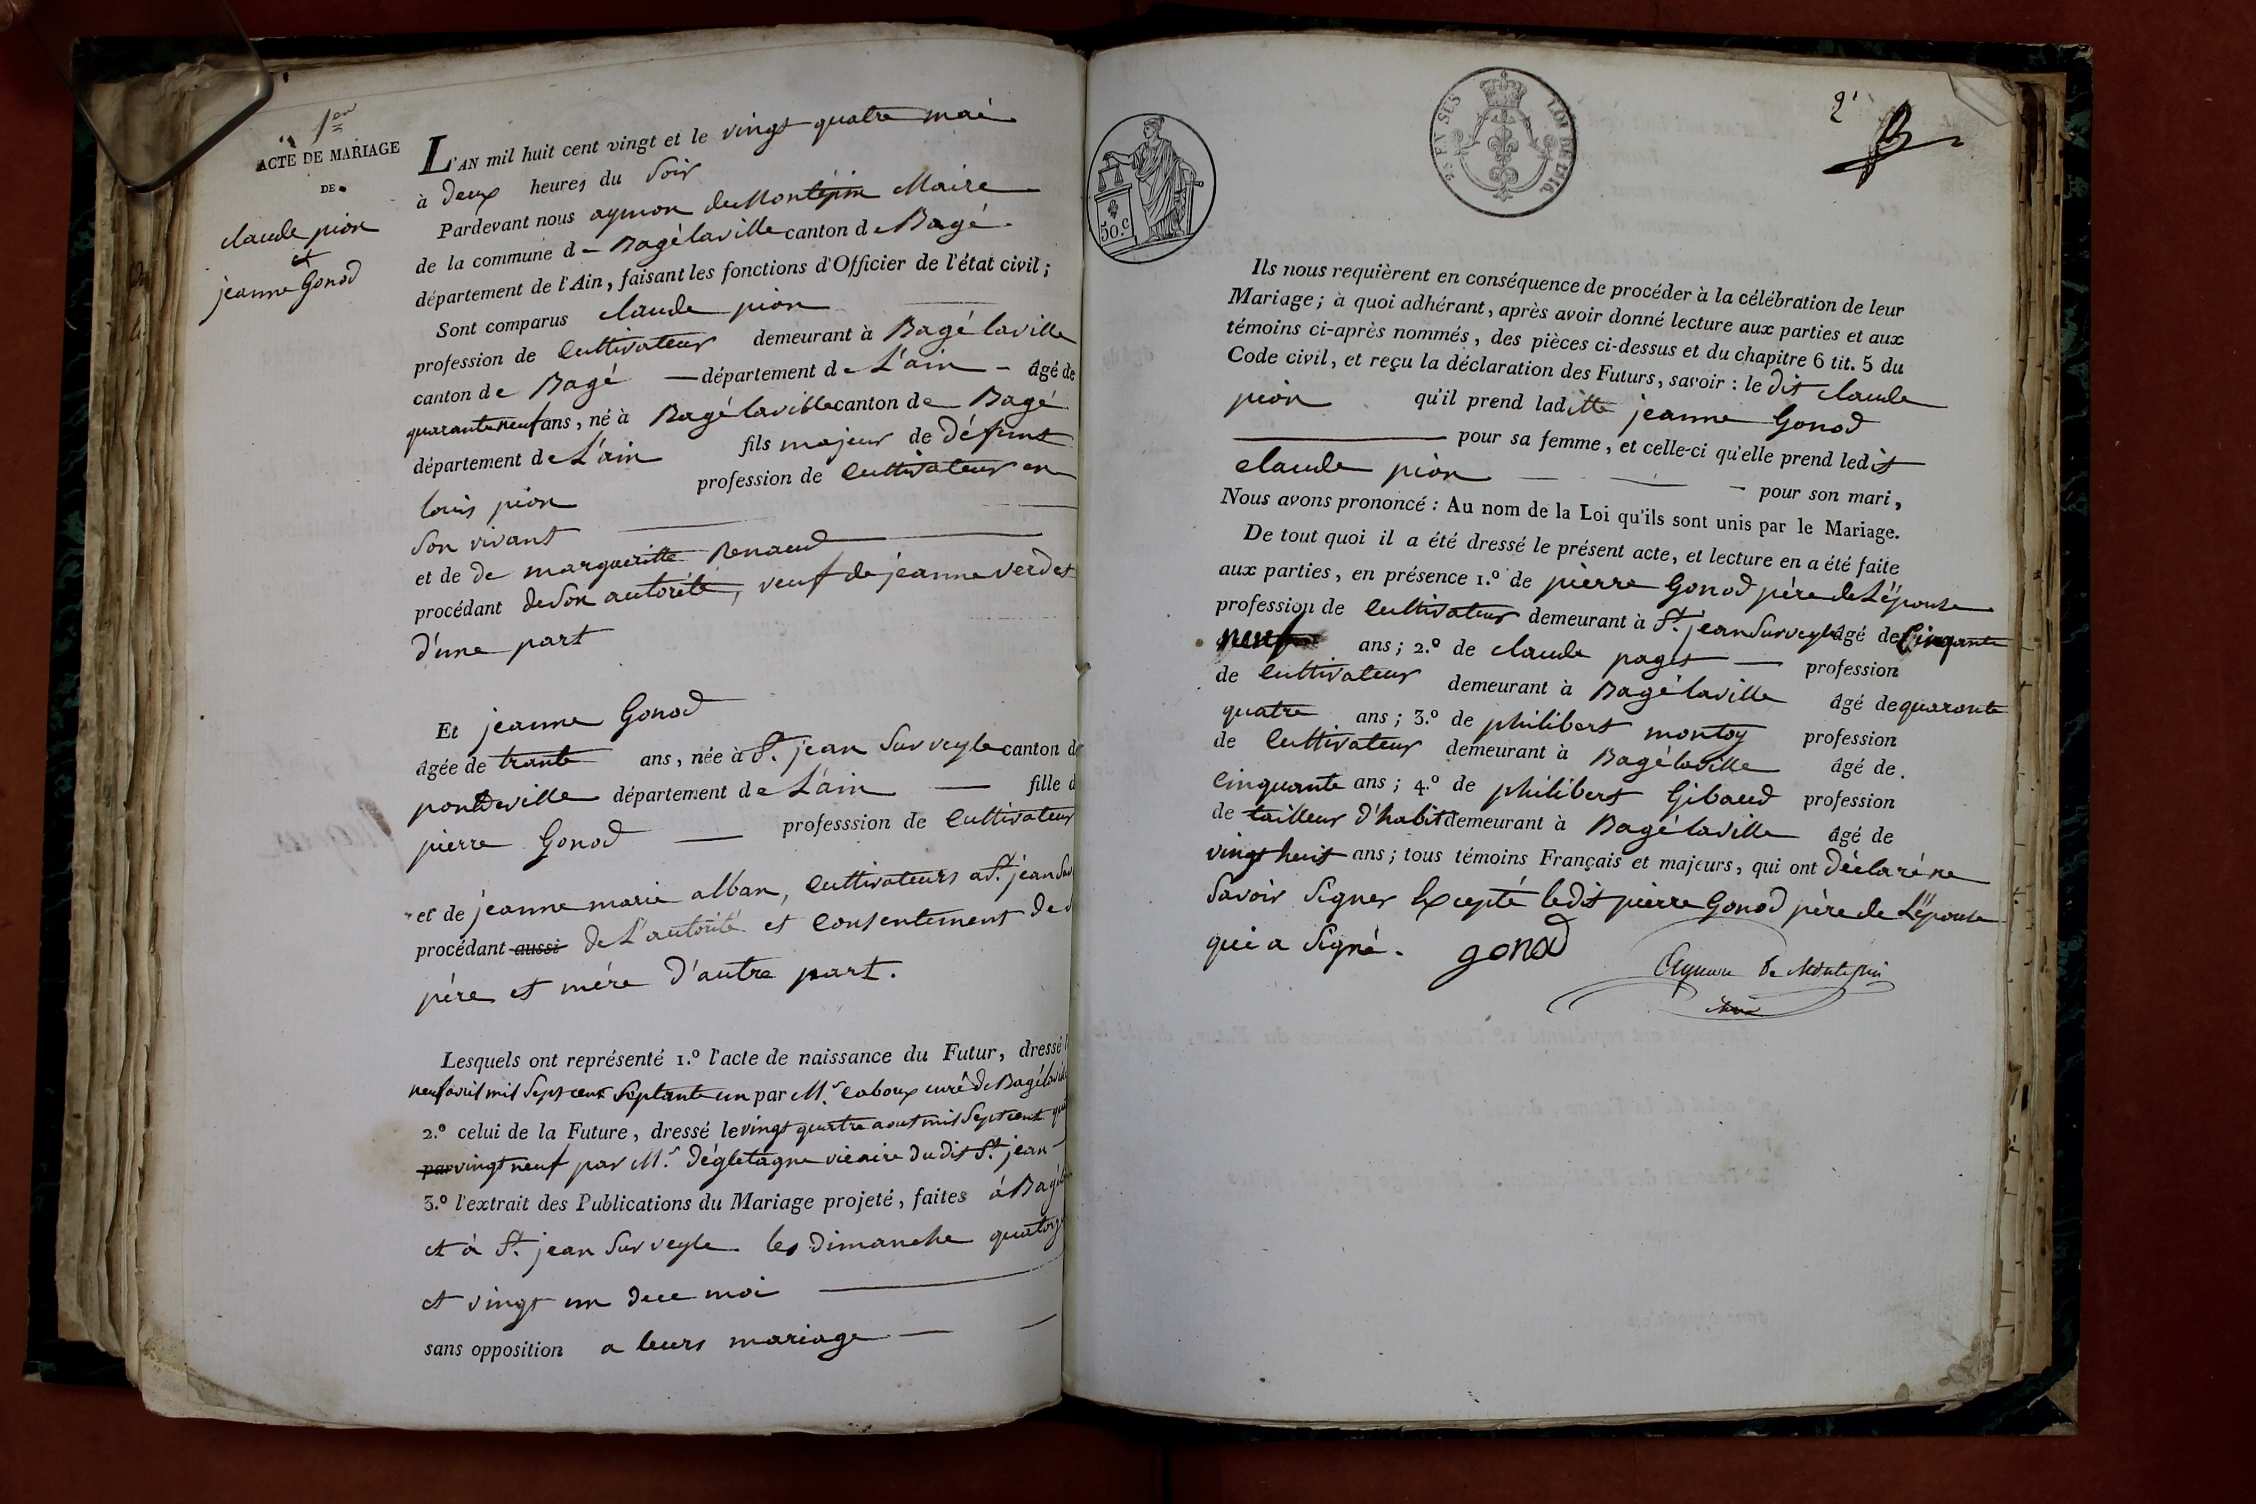 1er
ACTE DE MARIAGE
DE
claude pion
et
jeanne Gonod
L'AN mil huit cent vingt et le vingt quatre mai
à deux heures du soir
Pardevant nous aymon de Montépin Maire
de la commune de Bagé laville canton de Bagé
département de l'Ain, faisant les fonctions d'Officier de l'état civil ;
Sont comparus claude pion
profession de Cultivateur demeurant à Bagé laville
canton de Bagé département de L'ain âgé de
quarante neuf ans, né à Bagé laville canton de Bagé
département de L'ain fils majeur de défunt
louis pion profession de Cultivateur en
son vivant
et de de margueritte Renaud
procédant de son autorité, veuf de jeanne verdet
d'une part
Et jeanne Gonod
âgée de trante ans, née à St. jean Sur veyle canton d
pontdeville département de L'ain fille d
pierre Gonod professsion de Cultivateur
et de jeanne marie alban, Cultivateurs a St. jean Sur
procédant aussi de L'autorité et Consentement de
père et mére d'autre part.
Lesquels ont représenté 1.º l'acte de naissance du Futur, dressé
neuf avril mil Sept cent Soptante un par Mr. caboux curé de Bagé lavil
2.º celui de la Future, dressé le vingt quatre aout mil Sept cent qua
par vingt neuf par Mr. dégletagne vicaire du dit St. jean
3.º l'extrait des Publications du Mariage projeté, faites à Bagé
et à St. jean Sur veyle les dimanche quatorze
et vingt un de ce moi
sans opposition a leurs mariage
50.c
2
Ils nous requièrent en conséquence de procéder à la célébration de leur
Mariage ; à quoi adhérant, après avoir donné lecture aux parties et aux
témoins ci-après nommés, des pièces ci-dessus et du chapitre 6 tit. 5 du
Code civil, et reçu la déclaration des Futurs, savoir : le dit claude
pion qu'il prend laditte jeanne Gonod
pour sa femme, et celle-ci qu'elle prend ledit
claude pion pour son mari,
Nous avons prononcé : Au nom de la Loi qu'ils sont unis par le Mariage.
De tout quoi il a été dressé le présent acte, et lecture en a été faite
aux parties, en présence 1.º de pierre Gonod père de L'épouse
profession de Cultivateur demeurant à St. jean Sur veyle âgé de Cinqante
neuf ans ; 2.º de claude paget profession
de Cultivateur demeurant à Bagé laville âgé de quarante
quatre ans ; 3.º de philibert montoy profession
de Cultivateur demeurant à Bagé laville âgé de
Cinquante ans ; 4.º de philibert Gibaud profession
de tailleur d'habit demeurant à Bagé laville âgé de
vingt huit ans ; tous témoins Français et majeurs, qui ont déclaré ne
Savoir Signer Excepté ledit pierre Gonod père de L'épouse
qui a Signé. gonod
Aymon De Montépin